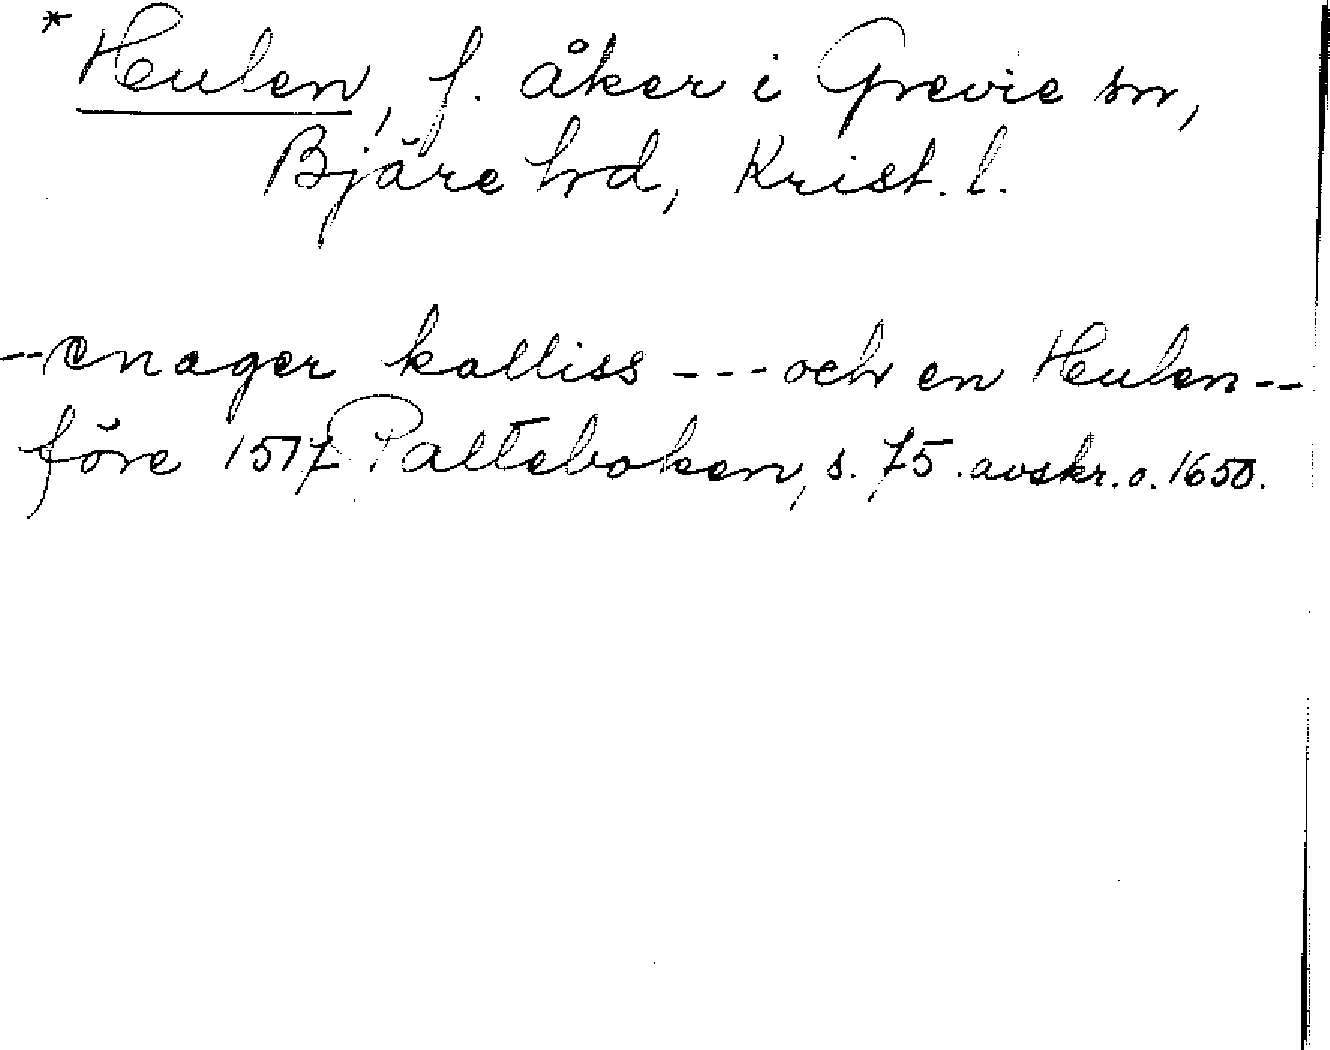 * Heulen, f. åker i Grevie sn,
Bjäre hd, Krist. l.
-- en ager kalliss --- och en Heulen --
före 1517 Palteboken, s. 75. avskr. o. 1650.